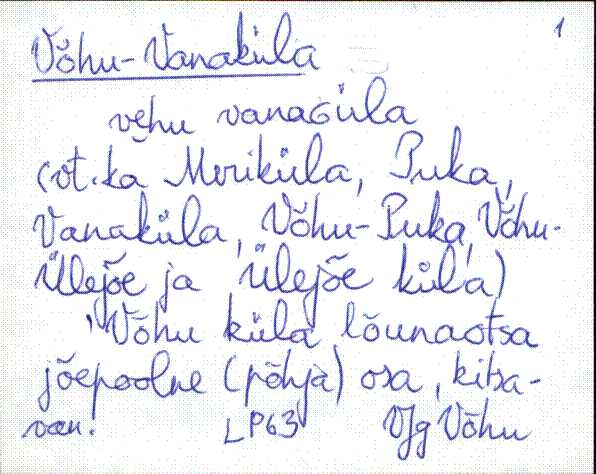 1
Võhu-Vanaküla
vehu vanaGüla
(vt. ka Meriküla, Puka,
Vanaküla, Võhu-Puka, Võhu-
Ülejõe ja Ülejõe küla)
Võhu küla lõunaotsa
jõepoolne (põhja) osa, kitsa-
LP63 VJg Võhu